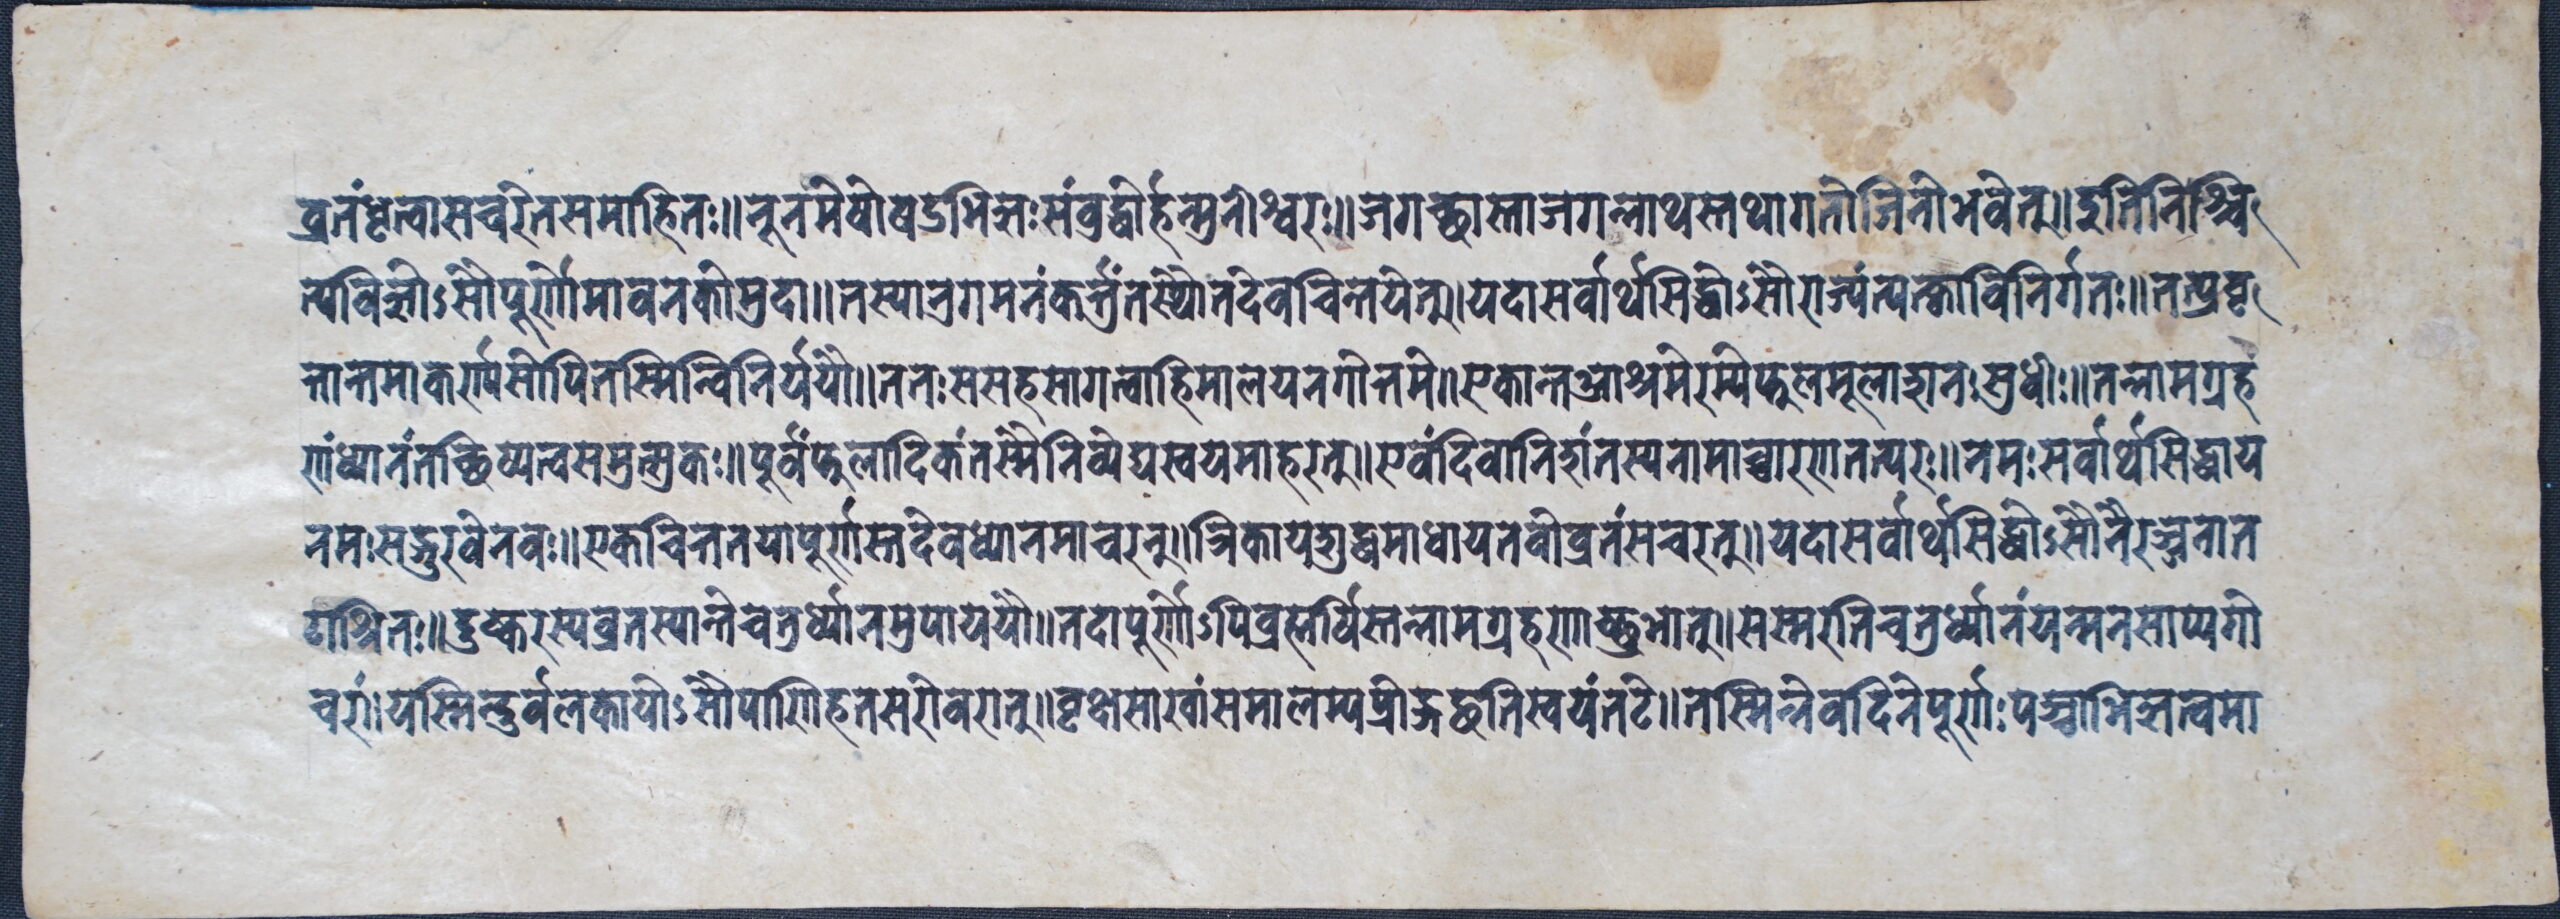 व्रतंधृत्वासचरेतसमाहितः॥नूनमेषोषडभिज्ञःसंबुद्धोर्हन्मुनीश्वरः॥जगच्छास्ताजगन्नाथस्तथागतोजिनोभवेत्॥इतिनिश्चि
त्यविज्ञोऽसौपूर्णोमावनकोमुदा॥तस्यानुगमनंकर्त्तुंतस्थौतदेवचिन्तयेत्॥यदासर्वार्थसिद्धोऽसौराज्यंत्यक्त्वाविनिर्गतः॥तत्प्रवृ
त्तान्तमाकर्ण्यसोपितस्मिन्विनिर्ययौ॥ततःससहसागत्वाहिमालयनगोत्तमे॥एकान्तआश्रमेरम्येफलमूलाशनःसुधीः॥तन्नामग्रह
णंध्यानंतच्छिष्यत्वसमुत्सुकः॥पूर्वंफलादिकंतस्मैनिवेद्यस्वयमाहरत्॥एवंदिवानिशंतस्यनामोच्चारणतत्परः॥नमःसर्वार्थसिद्धाय
नमःसद्गुरवेतवः॥एकचित्ततयापूर्णस्तदेवध्यानमाचरत्॥त्रिकायशुद्धमाधायतपोव्रतंसचरत्॥यदासर्वार्थसिद्धोऽसौनैरञ्जनात
टाश्रितः॥दुष्करस्यव्रतस्यान्तेचतुर्ध्यानमुपाययौ॥तदापूर्णोऽपिब्रह्मर्षिस्तन्नामग्रहणाच्छुभात्॥सस्मरतिचतुर्ध्यानंयन्मनसाप्यगो
चरं।यस्मिन्दुर्बलकायोऽसौपाणिहतसरोवरात्॥वृक्षसाखांसमालम्यप्रोद्गच्छतिस्वयंतटे॥तस्मिन्नेवदिनेपूर्णःपञ्चाभिज्ञत्वमा